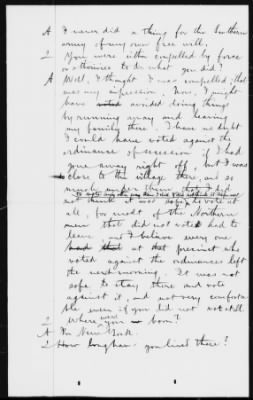 A I never did a thing for the Southern
army of my own free will.
Q You were either compelled by force
or otherwise to do what you did?
A Well, I thought I was compelled, that
was my impression. Now, I might
have voted avoided doing things
by running away and leaving
my family there. I have no doubt
I could have voted against the
ordinance of secession if I had
gone away right off, but I was
close to the village there, and so
much under them that I did
not think it was safe to vote at
all, for most of the Northern
men that did not vote had to
leave, and I believe every one
had that at that precinct who
voted against the ordinances left
the next morning. It was not
safe to stay there and vote
against it, and not very comforta
ble even if you did not vote at all
Q Where were you born?
A In New York.
Q How long have you lived there?